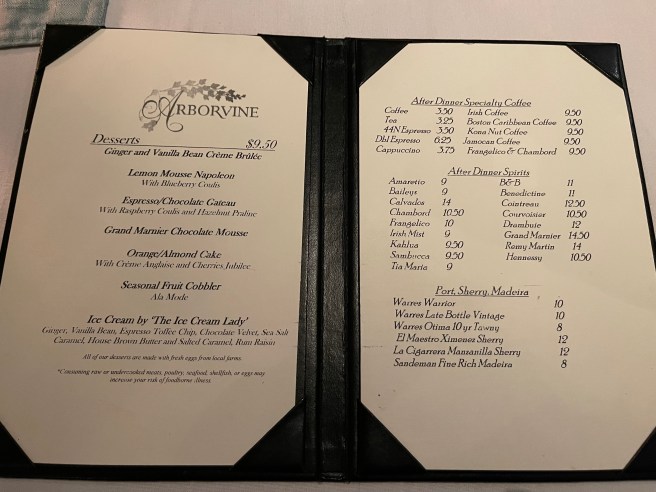 ARBORVINE
Desserts $9.50
Ginger and Vanilla Bean Crème Brûlée
Lemon Mousse Napoleon
With Blueberry Coulis
Espresso/Chocolate Gateau
With Raspberry Coulis and Hazelnut Praline
Grand Marnier Chocolate Mousse
Orange/Almond Cake
With Crème Anglaise and Cherries Jubilee
Seasonal Fruit Cobbler
Ala Mode
Ice Cream by 'The Ice Cream Lady'
Ginger, Vanilla Bean, Espresso Toffee Chip, Chocolate Velvet, Sea Salt
Caramel, House Brown Butter and Salted Caramel, Rum Raisin
All of our desserts are made with fresh eggs from local farms
*Consuming raw or undercooked meats, poultry, seafood, shellfish, or eggs may
increase your risk of foodborne illness
After Dinner Specialty Coffee
Coffee 3.50 Irish Coffee 9.50
Tea 3.25 Boston Caribbean Coffee 9.50
44N Espresso 3.50 Kona Nut Coffee 9.50
Dbl Espresso 6.25 Jamocan Coffee 9.50
Cappuccino 3.75 Frangelico & Chambord 9.50
After Dinner Spirits
Amaretto 9 B&B 11
Baileys 9 Benedictine 11
Calvados 14 Cointreau 12.50
Chambord 10.50 Courvoisier 10.50
Frangelico 10 Drambuie 12
Irish Mist 9 Grand Marnier 14.50
Kahlua 9.50 Remy Martin 14
Sambucca 9.50 Hennessy 10.50
Tia Maria 9
Port, Sherry, Madeira
Warres Warrior 10
Warres Late Bottle Vintage 10
Warres Otima 10 yr Tawny 8
El Maestro Ximenez Sherry 12
La Cigarrera Manzanilla Sherry 12
Sandeman Fine Rich Madeira 8